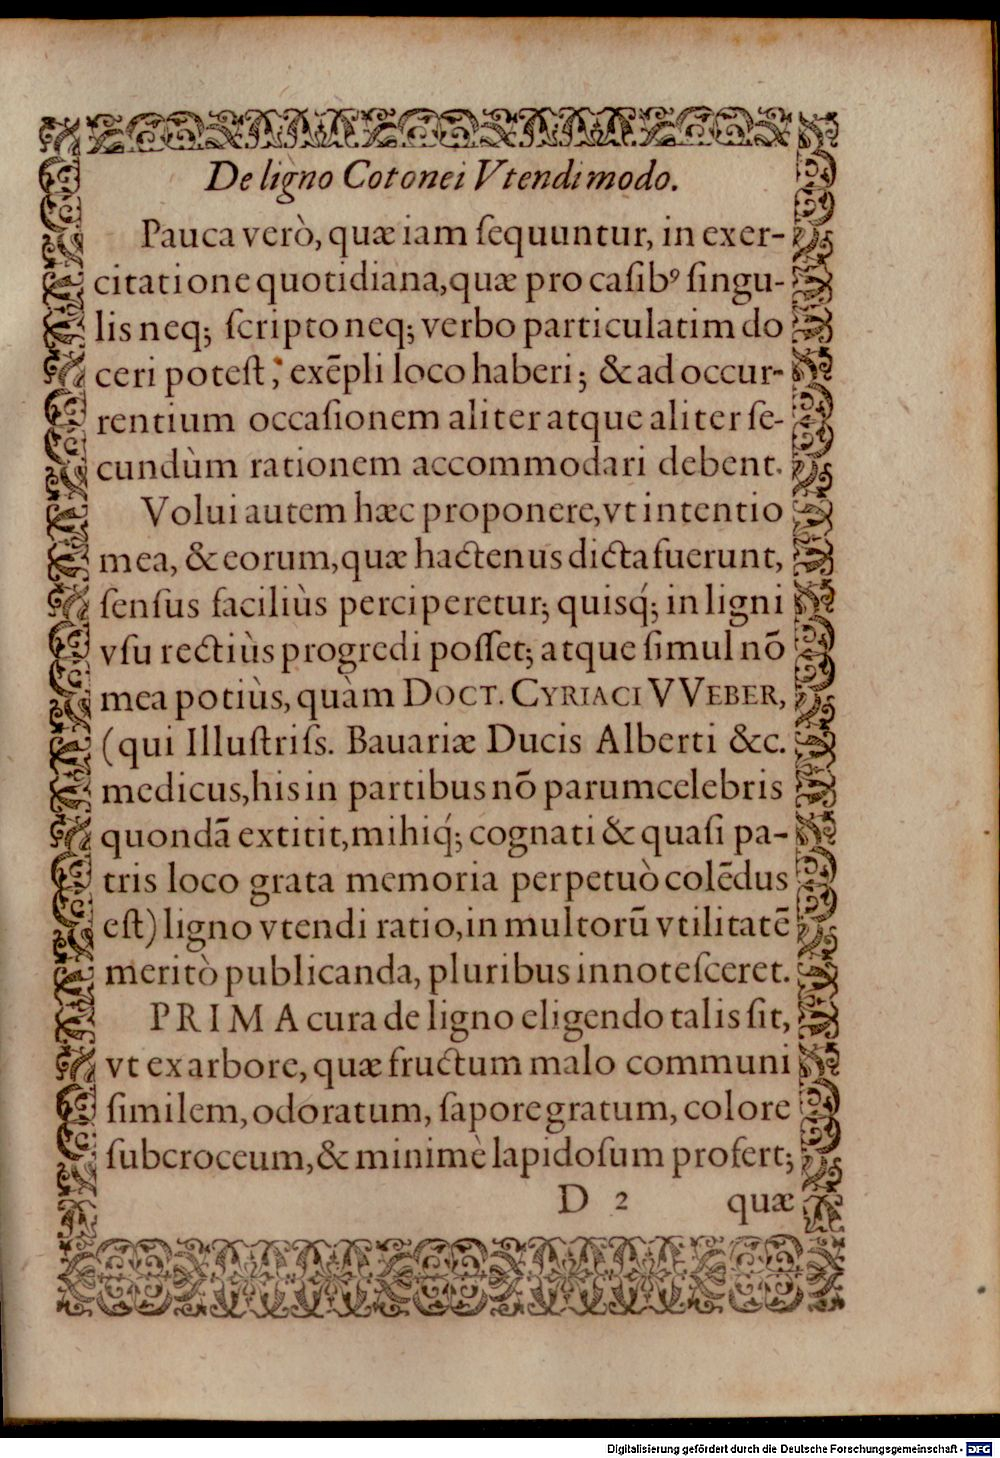 De ligno Cotonei Vtendi modo.
Pauca verò, quæ iam ſequuntur, in exer-
citatione quotidiana, quæ pro caſibꝰ ſingu-
lis neq; ſcripto neq; verbo particulatim do
ceri poteſt, exēpli loco haberi; & ad occur-
rentium occaſionem aliter atque aliter ſe-
cundùm rationem accommodari debent.
Volui autem hæc proponere, vt intentio
mea, & eorum, quæ hactenus dicta fuerunt,
ſenſus faciliùs perciperetur; quisq́; in ligni
vſu rectiùs progredi poſſet; atque ſimul nō
mea potiùs, quàm DOCT. CYRIACI VVEBER,
(qui Illuſtriſs. Bauariæ Ducis Alberti &c.
medicus, his in partibus nō parum celebris
quondā extitit, mihiq́; cognati & quaſi pa-
tris loco grata memoria perpetuò colēdus
eſt) ligno vtendi ratio, in multorū vtilitatē
meritò publicanda, pluribus innoteſceret.
PRIMA cura de ligno eligendo talis ſit,
vt ex arbore, quæ fructum malo communi
ſimilem, odoratum, ſapore gratum, colore
ſubcroceum, & minimè lapidoſum profert;
D 2 quæ
Digitalisierung gefördert durch die Deutsche Forschungsgemeinschaft - DFG